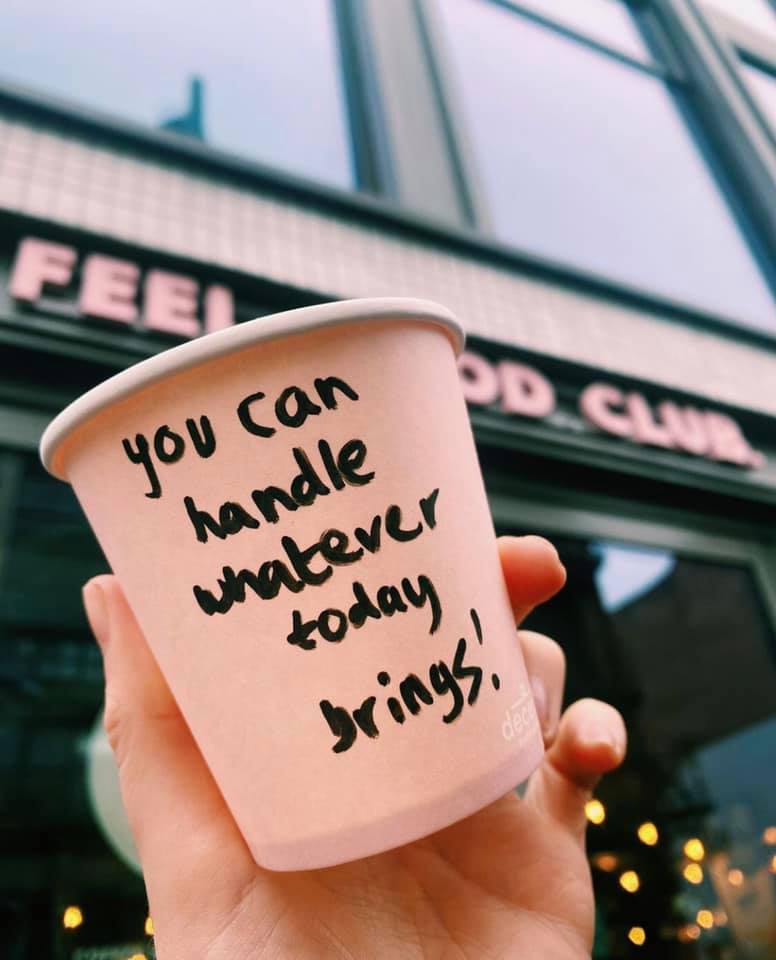 FEEL OD CLUB.
you can
handle
whatever
today
brings!